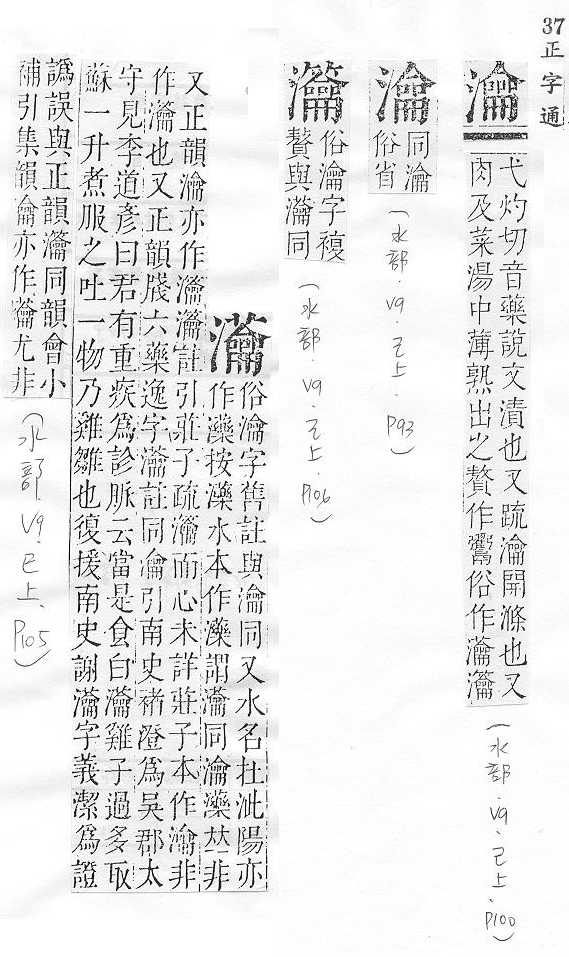 37
正字通
瀹
弋灼切音藥說文漬也又疏瀹開滌也又
肉及菜湯中薄熟出之贅作鬻俗作
(水部.V9.已上.P100)
同瀹
俗省
(水部.V9.已上.P93)
俗瀹字複
贅與同
(水部.V9.已上.P106)
俗瀹字舊註與瀹同又水名在沘陽亦
作灤按灤水本作灤謂同瀹灤𠀤非
又正韻瀹亦作註引莊子疏而心未詳莊子本作瀹非
作也又正韻牋六藥逸字註同瀹引南史褚澄為吳郡太
守見李道彥曰君有重疾為診脈云當是食白雞子過多取
蘇一升煮服之吐一物乃雞雛也復援南史謝字義潔為證
譌誤與正韻同韻會小
補引集韻瀹亦作尤非
(水部.V9.已上.P105)